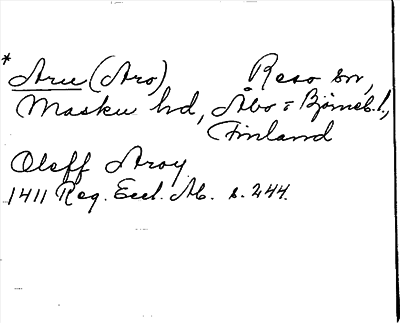 * Aru (Aro), Reso sn,
Masku hd, Åbo = Björneb. l.,
Finland
Oleff Aroy
1411 Reg. Eccl. Ab. s. 244.